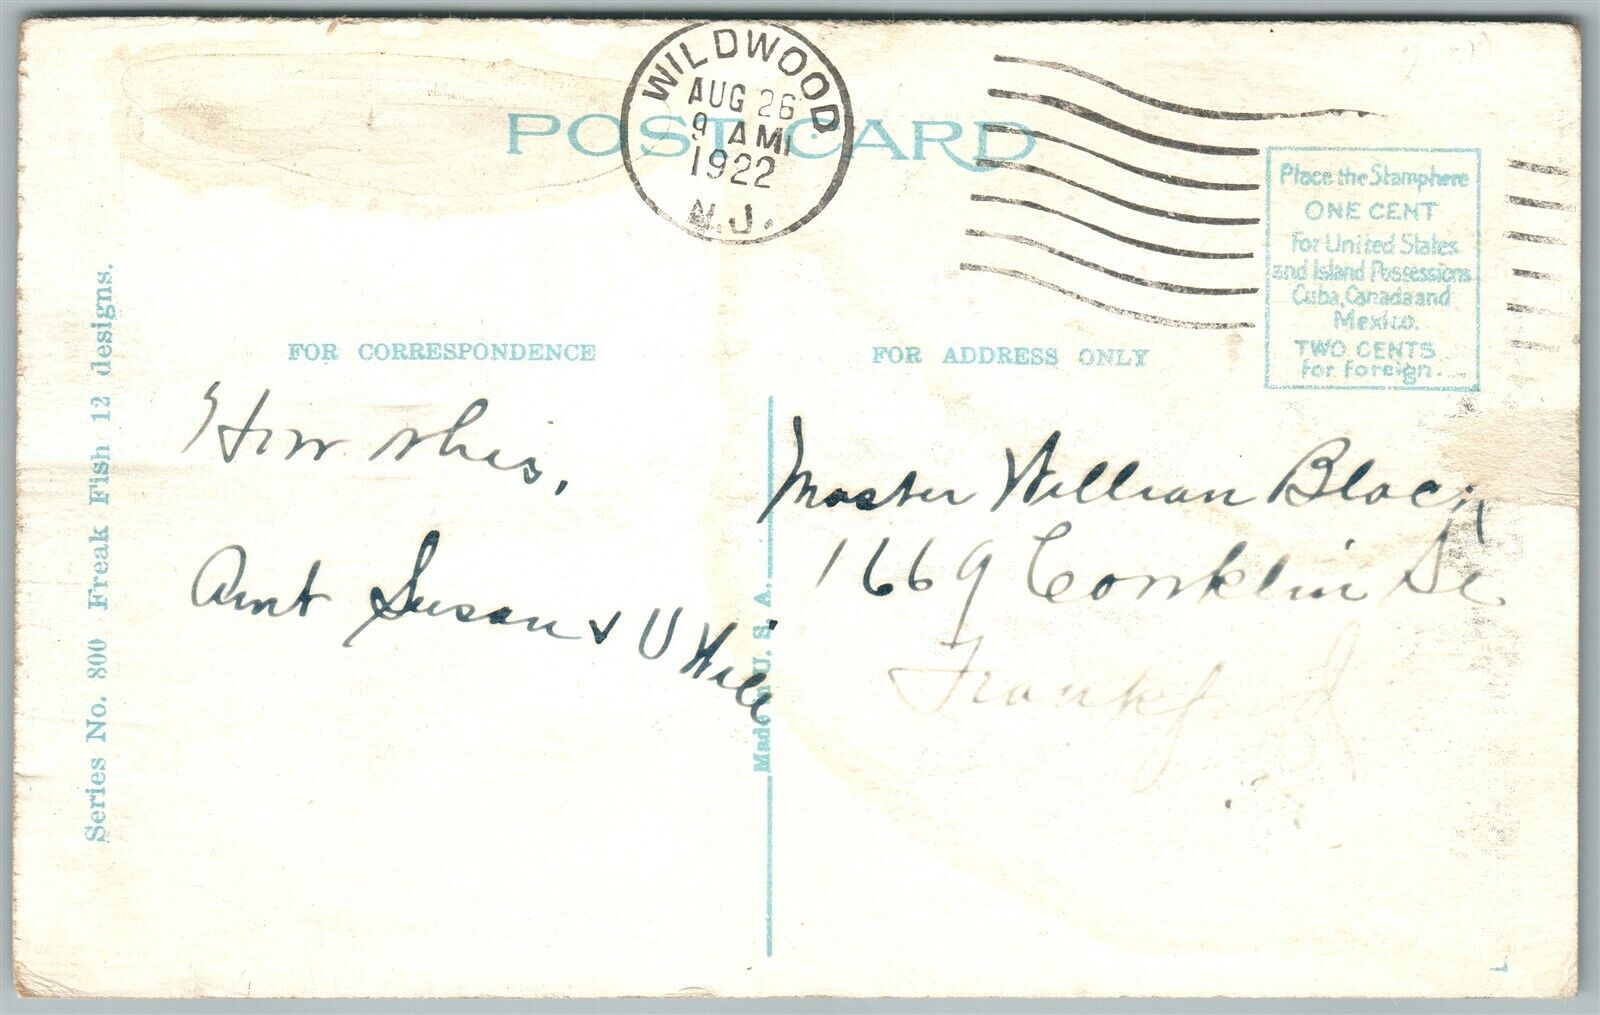 WILDWOOD
AUG 26
9 AM
1922
N.J.
POST CARD
Place the Stamp here
ONE CENT
For United States
and Island Possessions
Cuba, Canada and
Mexico.
TWO CENTS
for foreign.
Series No. 800 Freak Fish 12 designs.
FOR CORRESPONDENCE
FOR ADDRESS ONLY
How this,
Aunt Susan & U Will
Made in U. S. A.
Master William Black
1669 Conklin St
Frankford